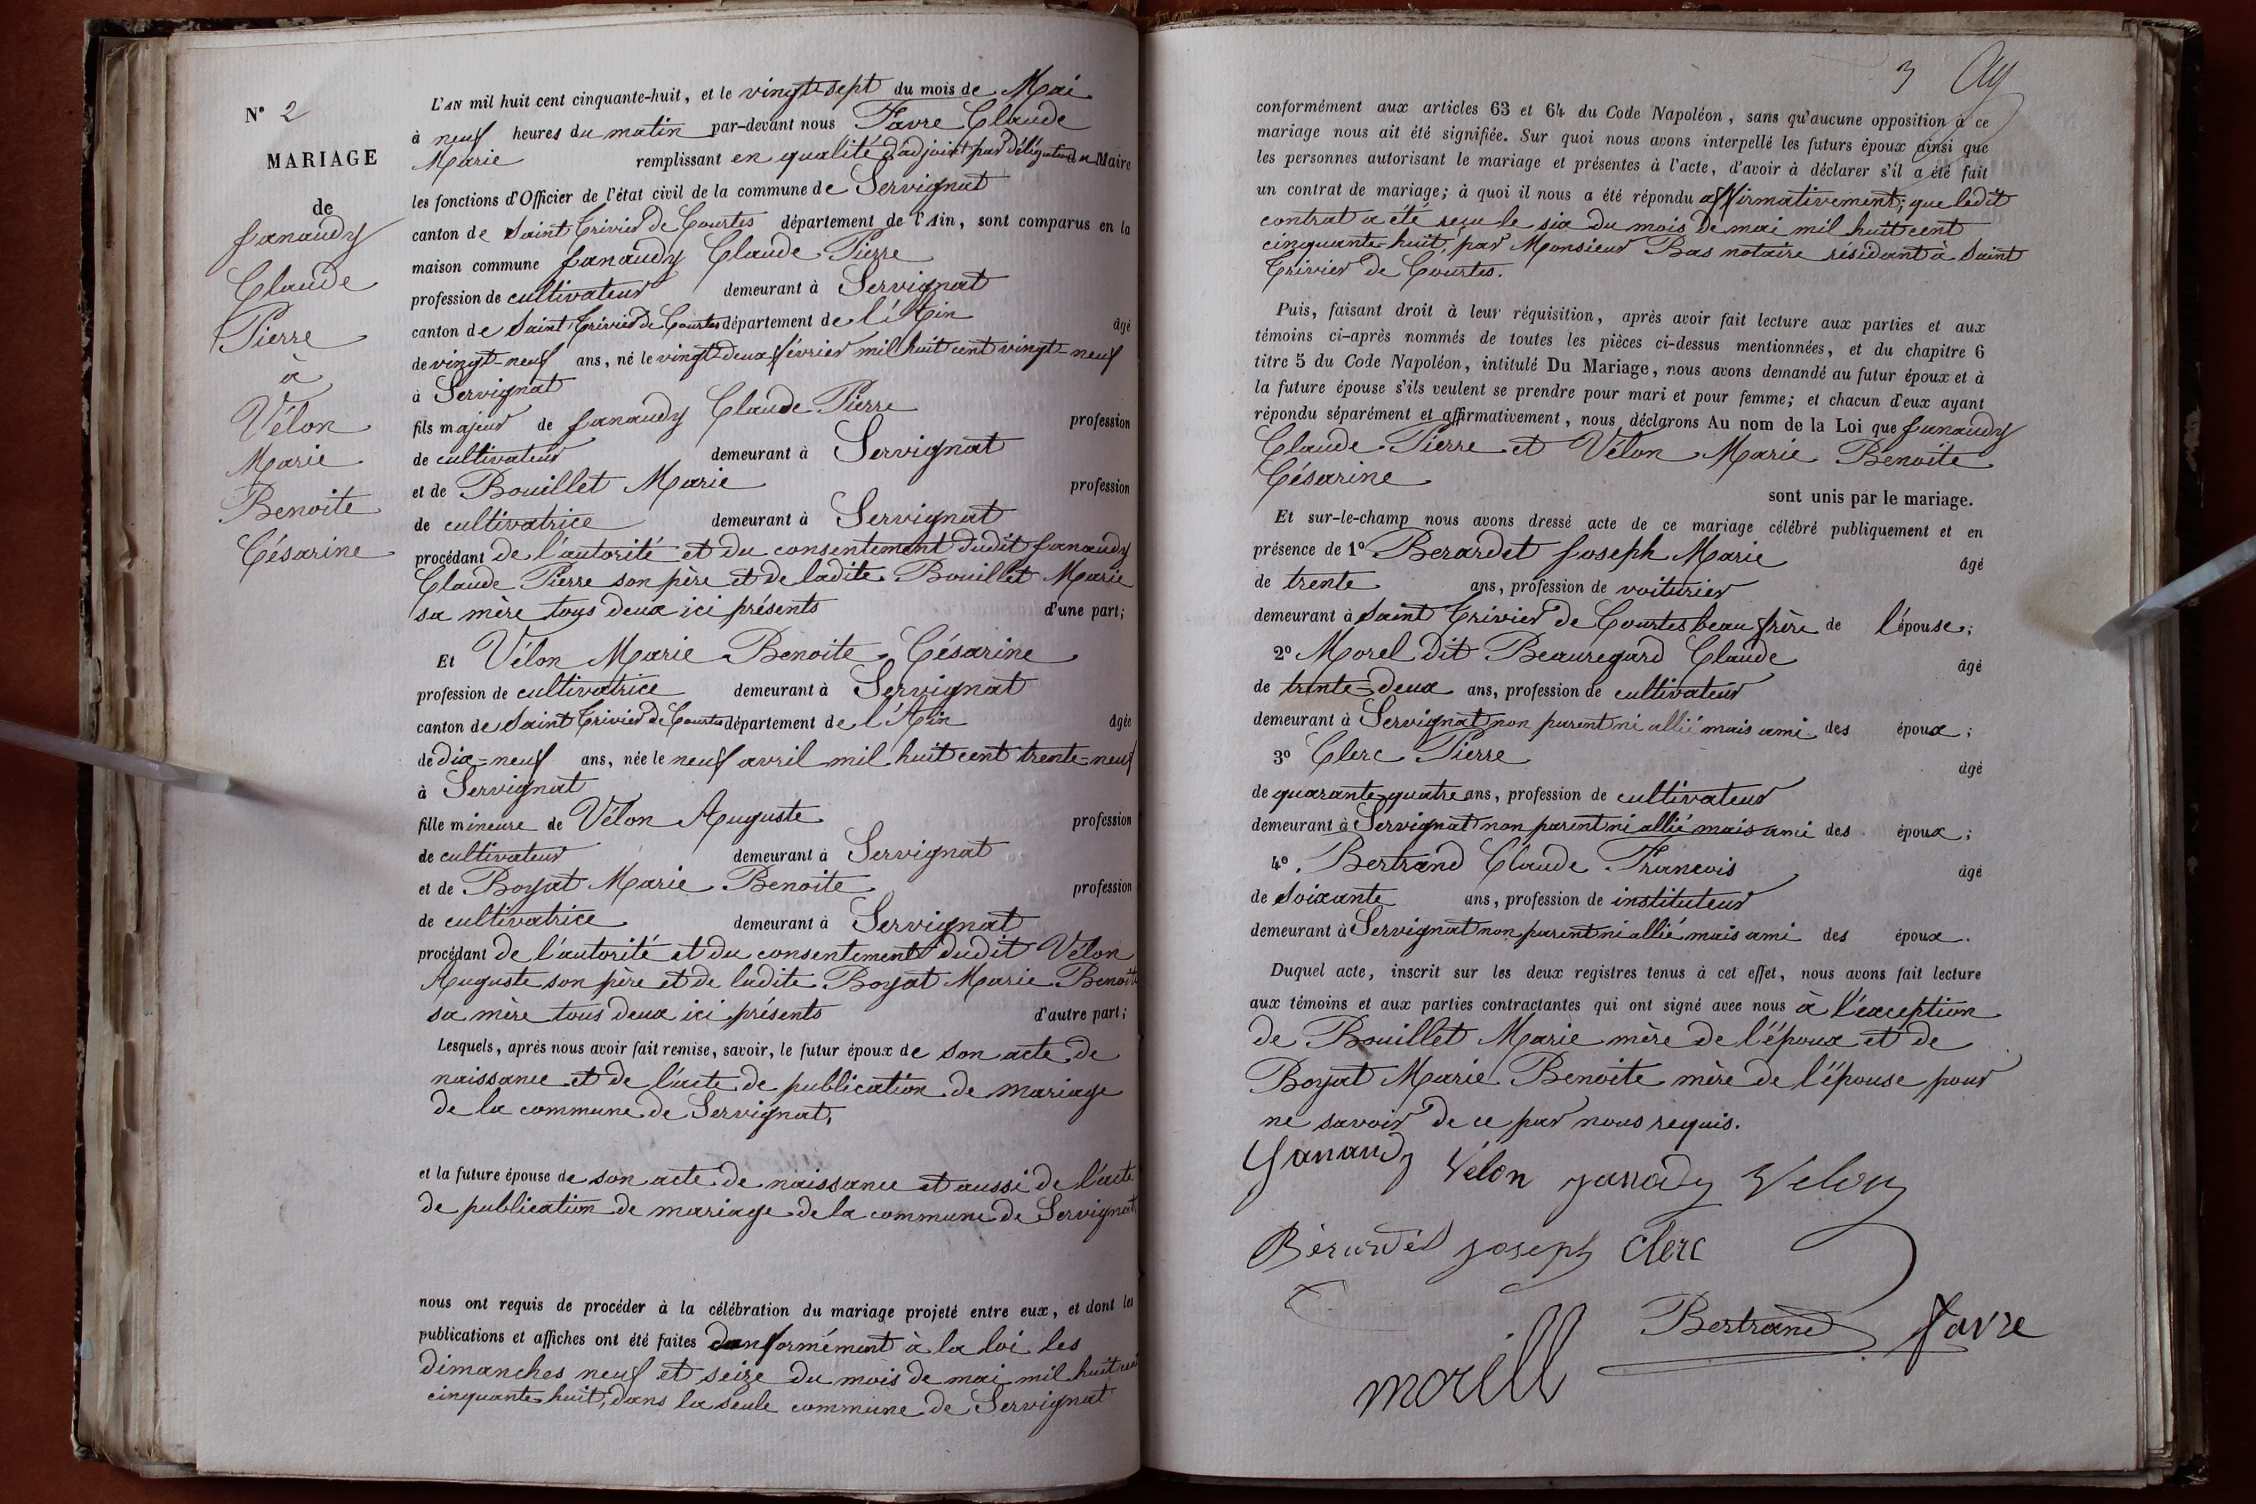 N° 2
MARIAGE
de
Janaudy
Claude
Pierre
à
Vélon
Marie
Benoite
Césarine
L'AN mil huit cent cinquante-huit, et le vingt-sept du mois de Mai
à neuf heures du matin par-devant nous Favre Claude
Marie remplissant en qualité d'adjoint par délégation du Maire
les fonctions d'Officier de l'état civil de la commune de Servignat
canton de Saint Trivier de Courtes département de l'Ain, sont comparus en la
maison commune Janaudy Claude Pierre
profession de cultivateur demeurant à Servignat
canton de Saint Trivier de Courtes département de l'Ain âgé
de vingt-neuf ans, né le vingt-deux février mil huit cent vingt-neuf
à Servignat
fils majeur de Janaudy Claude Pierre profession
de cultivateur demeurant à Servignat
et de Bouillet Marie profession
de cultivatrice demeurant à Servignat
procédant de l'autorité et du consentement dudit Janaudy
Claude Pierre son père et de ladite Bouillet Marie
sa mère tous deux ici présents d'une part;
Et Vélon Marie Benoite Césarine
profession de cultivatrice demeurant à Servignat
canton de Saint Trivier de Courtes département de l'Ain âgée
de dix-neuf ans, née le neuf avril mil huit cent trente-neuf
à Servignat
fille mineure de Vélon Auguste profession
de cultivateur demeurant à Servignat
et de Boyat Marie Benoite profession
de cultivatrice demeurant à Servignat
procédant de l'autorité et du consentement dudit Vélon
Auguste son père et de ladite Boyat Marie Benoite
sa mère tous deux ici présents d'autre part;
Lesquels, après nous avoir fait remise, savoir, le futur époux de son acte de
naissance et de l'acte de publication de mariage
de la commune de Servignat,
et la future épouse de son acte de naissance et aussi de l'acte
de publication de mariage de la commune de Servignat,
nous ont requis de procéder à la célébration du mariage projeté entre eux, et dont les
publications et affiches ont été faites conformément à la loi les
dimanches neuf et seize du mois de mai mil huit cent
cinquante-huit, dans la seule commune de Servignat
3
conformément aux articles 63 et 64 du Code Napoléon, sans qu'aucune opposition à ce
mariage nous ait été signifiée. Sur quoi nous avons interpellé les futurs époux ainsi que
les personnes autorisant le mariage et présentes à l'acte, d'avoir à déclarer s'il a été fait
un contrat de mariage; à quoi il nous a été répondu affirmativement; que ledit
contrat a été reçu le six du mois de mai mil huit cent
cinquante-huit, par Monsieur Bas notaire résidant à Saint
Trivier de Courtes.
Puis, faisant droit à leur réquisition, après avoir fait lecture aux parties et aux
témoins ci-après nommés de toutes les pièces ci-dessus mentionnées, et du chapitre 6
titre 5 du Code Napoléon, intitulé Du Mariage, nous avons demandé au futur époux et à
la future épouse s'ils veulent se prendre pour mari et pour femme; et chacun d'eux ayant
répondu séparément et affirmativement, nous déclarons Au nom de la Loi que Janaudy
Claude Pierre et Vélon Marie Benoite
Césarine
sont unis par le mariage.
Et sur-le-champ nous avons dressé acte de ce mariage célébré publiquement et en
présence de 1° Berardet Joseph Marie âgé
de trente ans, profession de voiturier
demeurant à Saint Trivier de Courtes beau frère de l'épouse;
2° Morel dit Beauregard Claude âgé
de trente-deux ans, profession de cultivateur
demeurant à Servignat non parent ni allié mais ami des époux;
3° Clerc Pierre âgé
de quarante-quatre ans, profession de cultivateur
demeurant à Servignat non parent ni allié mais ami des époux;
4°. Bertrand Claude Francois âgé
de soixante ans, profession de instituteur
demeurant à Servignat non parent ni allié mais ami des époux.
Duquel acte, inscrit sur les deux registres tenus à cet effet, nous avons fait lecture
aux témoins et aux parties contractantes qui ont signé avec nous à l'exception
de Bouillet Marie mère de l'époux et de
Boyat Marie Benoite mère de l'épouse pour
ne savoir de ce par nous requis.
Janaudy Vélon Janody Velon
Bérardet Joseph Clerc
Bertrand Favre
morell